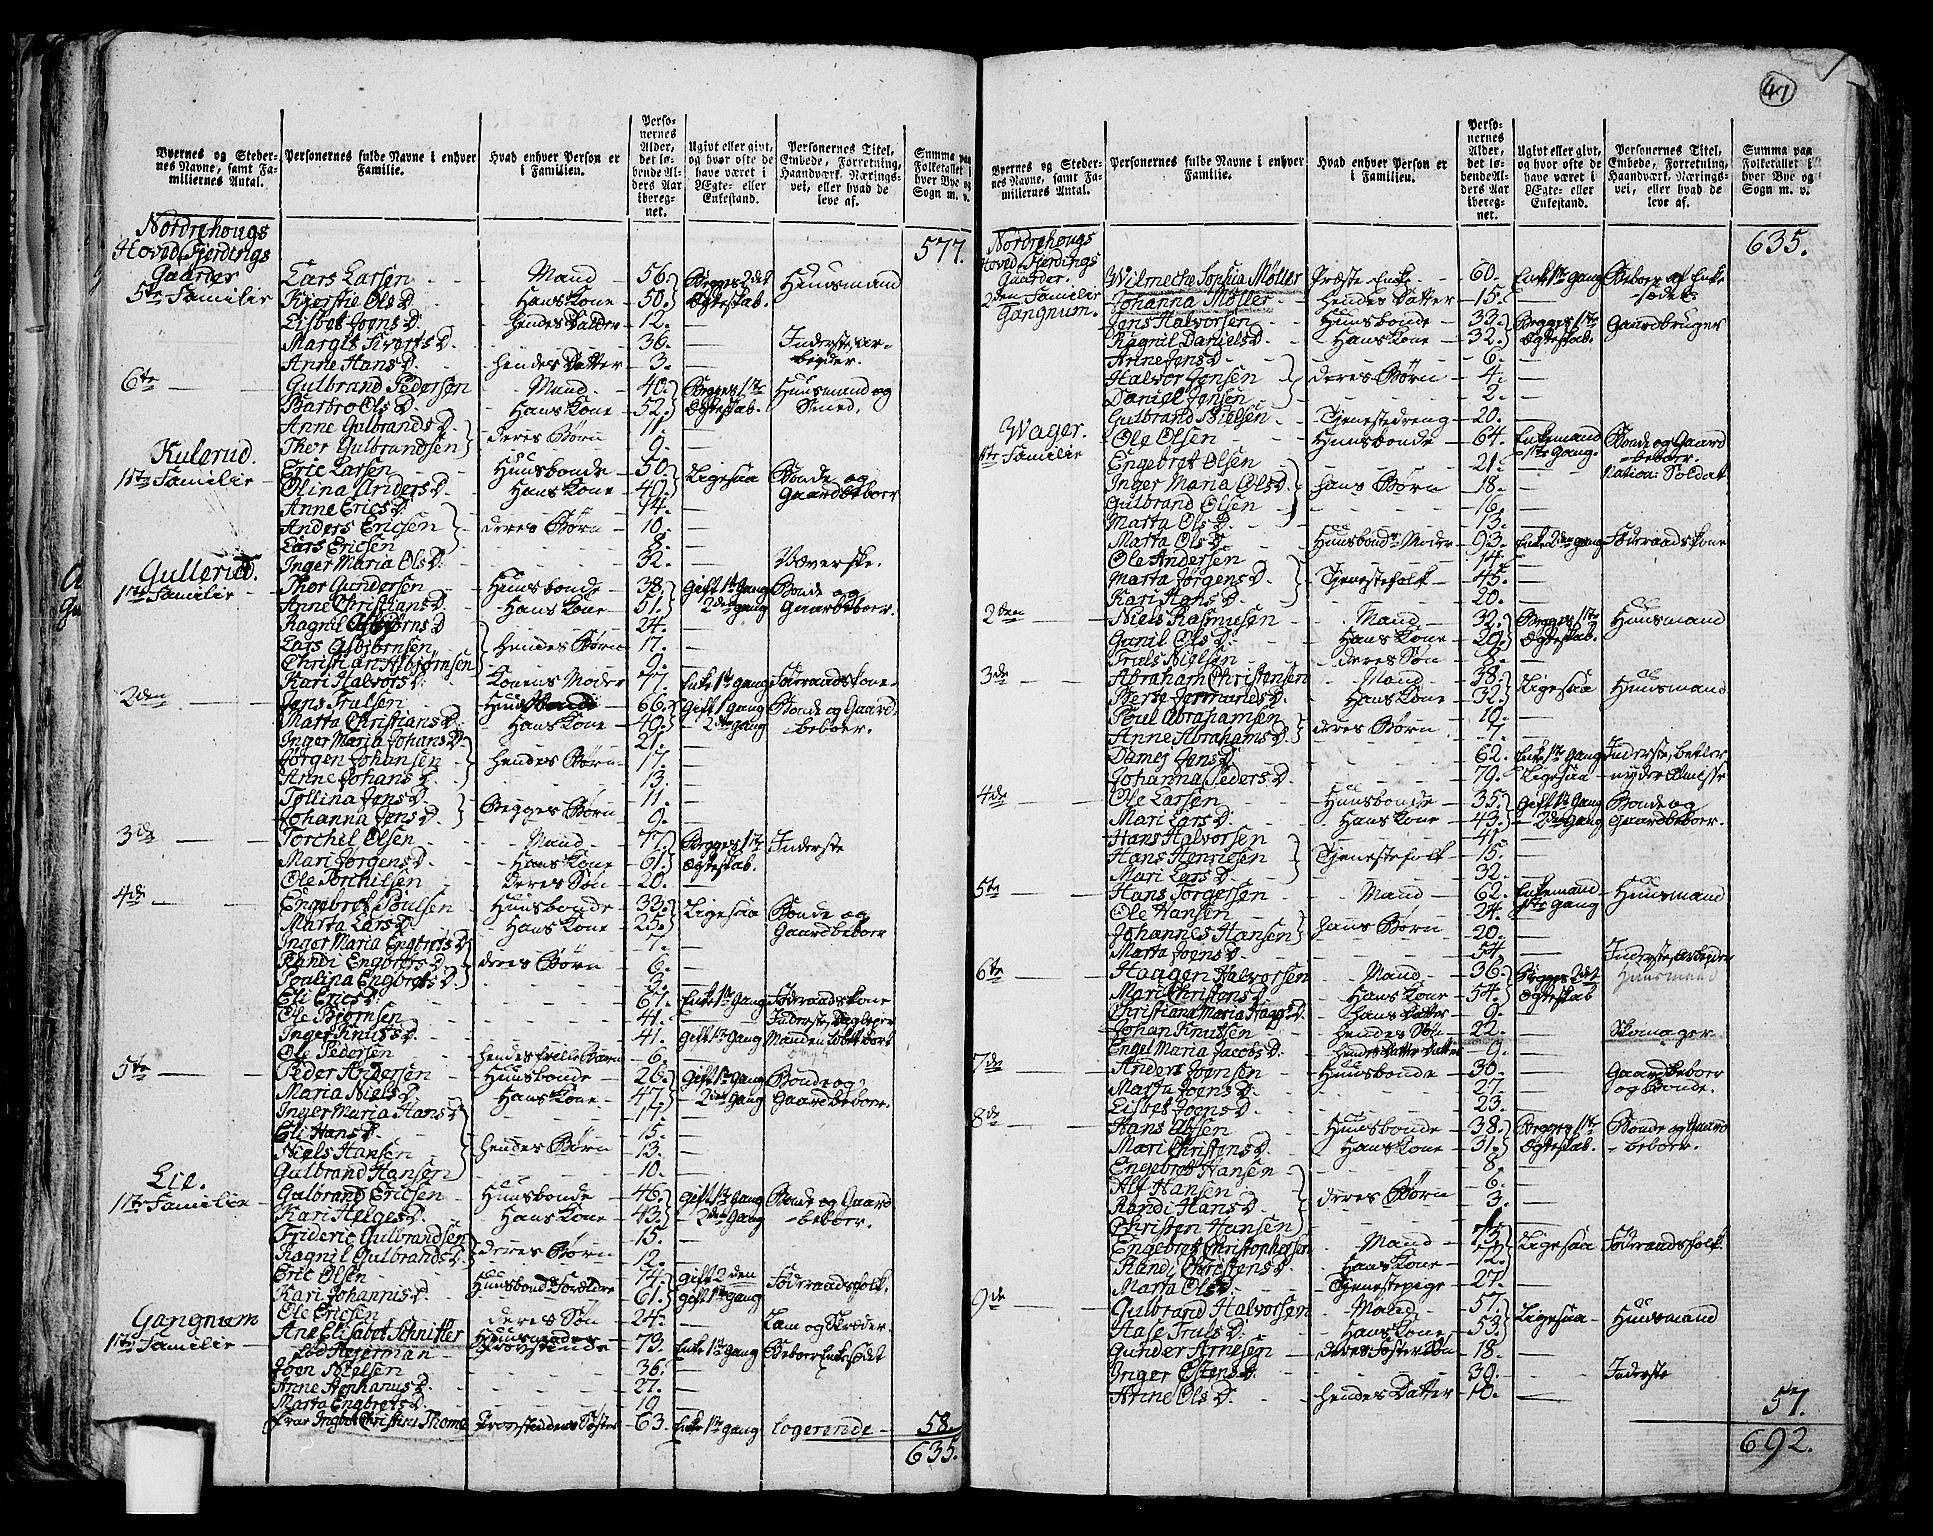 41
Byernes og Steder-
nes Navne, samt Fa-
miliernes Antal.
Personernes fulde Navne i enhver
Familie.
Hvad enhver Person er
i Familien.
Perso-
nernes
Alder,
det lø-
bende Al-
ders Aar
iberegnet.
Ugivt eller givt,
og hvor ofte de
have været i
Ægte- eller
Enkestand.
Personernes Titel,
Embede, Forretning,
Haandværk, Nærings-
vei, eller hvad de
leve af.
Summa paa
Folketallet i
hver Bye og
Sogn m. v.
Nordrehougs
Hoved Fjerdings
Gaarder
577.
5te Familie Lars Larsen Mand 56. Begges 2det Huusmand
Kjerstie Ols D. Hans Kone 50. Ægteskab.
Lisbet Joens D. Hendes Datter 12. —
Margit Siverts D. 36. — Inderste, ar-
beyder.
Anne Hans D. hendes Datter 3. —
6te Gulbrand Pedersen Mand 40. Begges 1te Huusmand og
Barbro Ols D. Hans Kone 52. Ægteskab. Smed.
Anne Gulbrands D. deres Børn 11. —
Thor Gulbrandsen 9. —
Kulerud.
1ste Familie Eric Larsen Huusbonde 50. Ligesaa Bonde og
Olina Anders D. Hans Kone 49. Gaardbeboer
Anne Erics D. 14. —
Anders Ericsen deres Børn 10. —
Lars Ericsen 8. —
Inger Maria Ols D. 32. — Væverske.
Gullerud.
1ste Familie Thor Gundersen Huusbonde 38. Gift 1te Gang Bonde og
Anne Christians D. Hans Kone 51. 2den gang Gaardbeboer.
Ragnil Asbjørns D. 24. —
Lars Asbjørnsen hendes Børn 17. —
Christian Asbjørnsen 9. —
Kari Halvors D. Konens Moder 77. Enke 1te gang Føderaadskone
2den Jens Trulsen Huusbonde 66. Gift 1 gang Bonde og Gaard
Marta Christians D. Hans Kone 49. 2den gang beboer.
Inger Maria Johans D. 21. —
Jørgen Johansen hendes Børn 17. —
Anne Johans D. 13. —
Tollina Jens D. Begges Børn 11. —
Johanna Jens D. 9. —
3de Torchel Olsen Mand 77. Begges 1te Inderste
Mari Jørgens D. Hans Kone 61. Ægteskab.
Ole Torchilsen deres Søn 20. —
4de Engebret Poulsen Huusbonde 32. Ligesaa Bonde og
Marta Lars D. Hans Kone 25. Gaardbeboer
Inger Maria Engbrets D. 7. —
Randi Engbrets D. deres Børn 6. —
Poulina Engbrets D. 2. —
Eli Erics D. 67. Enke 1te Gang Føderaadskone
Ole Bjørnsen 41. — Inderste, Daglejer
Inger Knuts D. 41. Gift 1te Gang
Ole Pedersen 6. —
5te Peder Andersen Huusbonde 26. Gift 1te Gang Bonde og
Maria Niels D. Hans Kone 47. 2den Gang Gaardbeboer.
Inger Maria Hans D. 17. —
Eli Hans D. 15. —
Niels Hansen hendes Børn 13. —
Gulbrand Hansen 10. —
Lie.
1te Familie Gulbrand Ericsen Huusbonde 46. Gift 1te Gang Bonde og Gaard
Kari Helges D. Hans Kone 43. 2den Gang beboer.
Frideric Gulbrandsen 15. —
Ragnil Gulbrands D. deres Børn 12. —
Eric Olsen Huusbond Forældre 74. gift 2den Føderaadsfolk.
Kari Johannis D. 61. gift 1te gang
Ole Ericsen deres Søn 24. — Lam og Skræder.
Gangnum
1te Familie Ane Elisabet Schnitler Huusmoder 73. Enke 1te Gang Beboer Enkesædet
fød Hejerman Provstinde
Joen Nielsen 36. —
Anne Stephanus D. 27. —
Marta Engbrets D. 19. —
Frue Ingbor Christine Thome Provstindens Søster 63. Enke 1te gang logerende 58.
635.
Byernes og Steder-
nes Navne, samt Fa-
miliernes Antal.
Personernes fulde Navne i enhver
Familie.
Hvad enhver Person er
i Familien.
Perso-
nernes
Alder,
det lø-
bende Al-
ders Aar
iberegnet.
Ugivt eller givt,
og hvor ofte de
have været i
Ægte- eller
Enkestand.
Personernes Titel,
Embede, Forretning,
Haandværk, Nærings-
vei, eller hvad de
leve af.
Summa paa
Folketallet i
hver Bye og
Sogn m. v.
Nordrehougs
Hoved Fjerdings
Gaarder.
635.
2den Familie Wilmeche Sophia Møller Præste-Enke 60. Enke 1te gang Beboer af Enke
Gangnum. Johanna Møller hendes Datter 15. — sædet
Jens Halvorsen Huusbonde 33. Begges 1te Gaardbruger
Ragnil Daniels D. Hans Kone 32. Ægteskab.
Anne Jens D. 6. —
Halvor Jensen deres Børn 4. —
Daniel Jensen 2. —
Gulbrand Nielsen Tjenestedreng 20. —
Wager.
1te Familie Ole Olsen Huusbonde 64. Enkemand Bonde og Gaard
Engebret Olsen 21. 1te Gang. beboer.
Nation: Soldat
Inger Maria Ols D. hans Børn 18. —
Gulbrand Olsen 16. —
Marta Ols D. 13. —
Marta Ols D. Huusbondens Moder 93. Enke 2den gang Føderaadskone
Ole Andersen 14. —
Marta Jørgens D. Tjenestefolk 45. —
Kari Hans D. 20. —
2den Niels Rasmusen Mand 32. Begges 1te Huusmand
Gunil Ols D. Hans Kone 29. Ægteskab.
Truls Nielsen deres Søn 8. —
3de Abraham Christensen Mand 38. Ligesaa Huusmand
Berte Jermunds D. Hans Kone 32.
Poul Abrahamsen deres Børn 10. —
Anne Abrahams D. 7. —
Damej Jens D. 62. Enke 1te Gang Inderste, betler
Johanna Peders D. 79. Ligesaa nyder Almisse
4de Ole Larsen Huusbonde 35. Gift 1te Gang Bonde og
Mari Lars D. Hans Kone 43. 2den Gang Gaardbeboer.
Hans Halvorsen 41. —
Hans Henricsen Tjenestefolk 15. —
Mari Lars D. 32. —
5te Hans Torgersen Mand 62. Enkemand Huusmand
Ole Hansen 24. 1te Gang
Johannes Hansen hans Børn 20. —
Marta Joens D. 54. — Inderste, arbeider
6te Haagen Halvorsen Mand 36. Begges 2det Huusmand
Mari Christens D. Hans Kone 54. Ægteskab
Christiana Maria Haags D. hans Datter 9. —
Johan Knutsen hendes Søn 22. — Skomager
Engel Maria Jacobs D. hendes Datter Datter 9. —
7de Anders Joensen Huusbonde 30. — Gaardbeboer
Marta Joens D. 27. — og Bonde.
Lisbet Joens D. 23. —
8de Hans Alfsen Huusbonde 38. Begges 1te Bonde og Gaard
Mari Christens D. Hans Kone 31. Ægteskab. beboer.
Engebret Hansen 8. —
Alf Hansen deres Børn 6. —
Randi Hans D. 3. —
Christen Hansen 1. —
Engebret Christophersen Mand 73. Ligesaa Føderaadsfolk.
Randi Christens D. Hans Kone
Marta Ols D. Tjenestepige 27. —
9de Gulbrand Halvorsen Mand 57. Ligesaa Huusmand
Hase Truls D. Hans Kone 53.
Gunder Arnesen deres Søster Søn 18. —
Inger Estens D. 39. — Inderste
Anne Ols D. hendes Datter 10. —
57.
692.